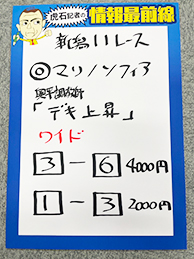 虎石記者の
情報最前線
新潟11レース
◎マリノソフィア
奥平調教師
「デキ上昇」
ワイド
3-6 4000円
1-3 2000円